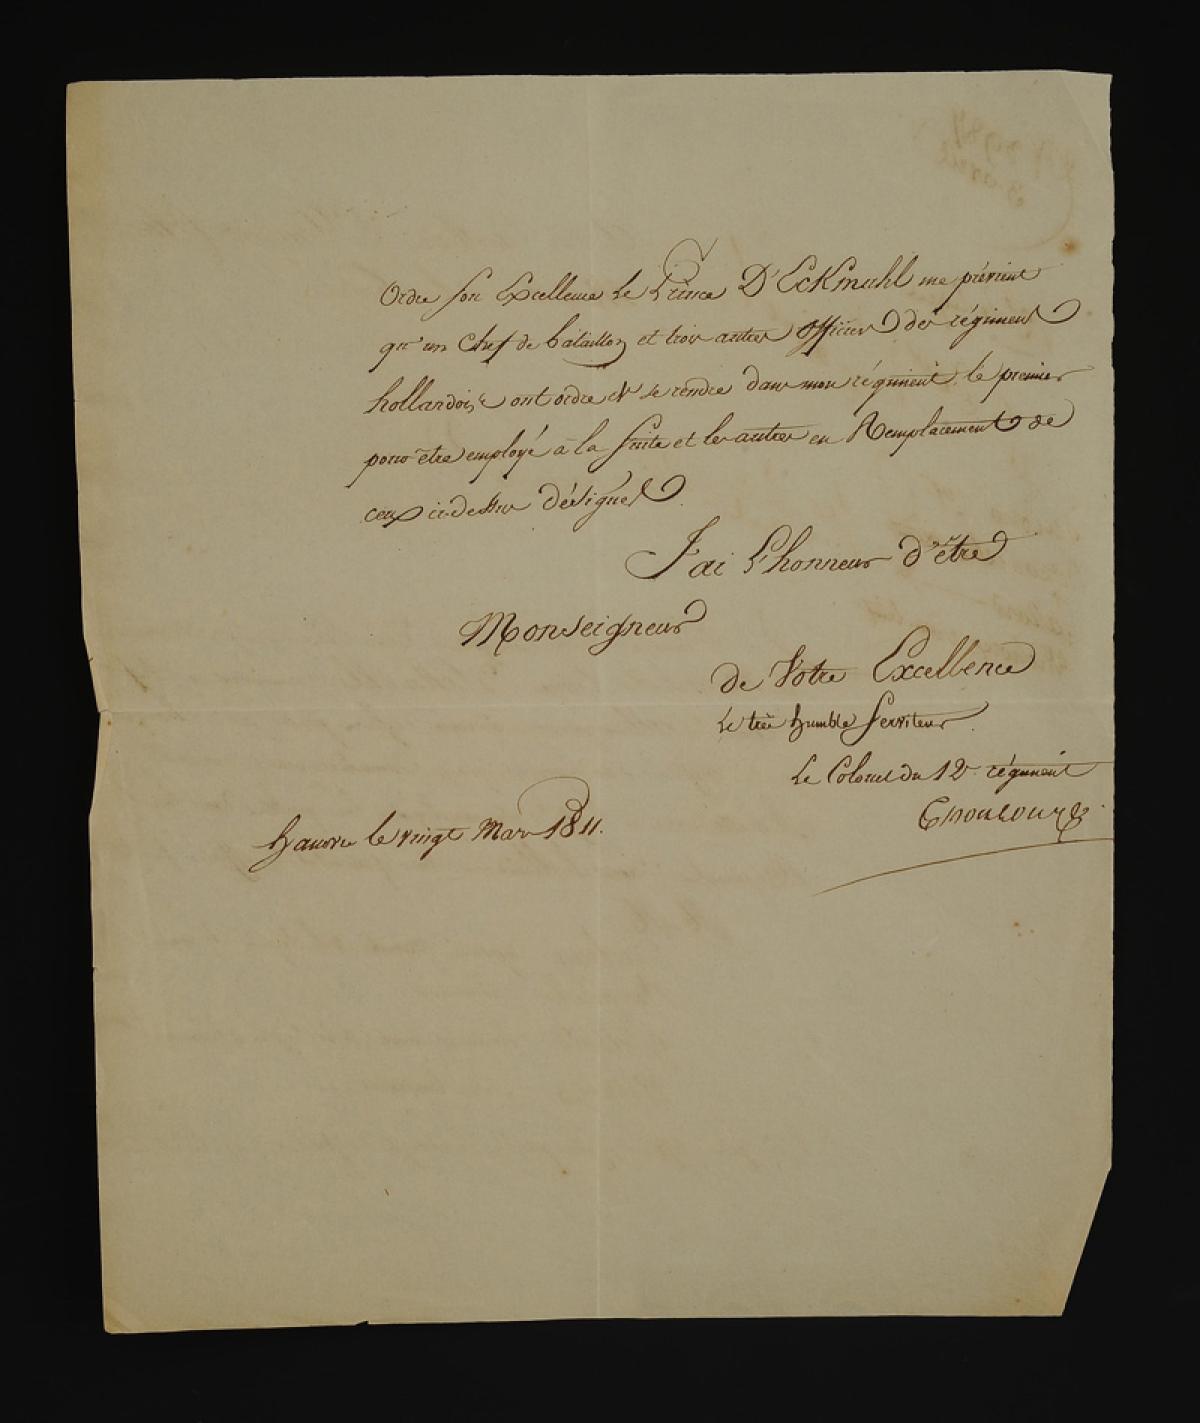 Ordre son Excellence Le Prince D'Eckmuhl me prévient
qu'un chef de bataillon et trois autres officiers des régiments
hollandois ont ordre de se rendre dans mon régiment, le premier
pour être employé à la suite et les autres en Remplacement de
ceux ci-dessus désignés
J'ai L'honneur d'être
Monseigneur
de Votre Excellence
Le très humble Serviteur
Le Colonel du 12e régiment
hanovre le vingt Mars 1811.